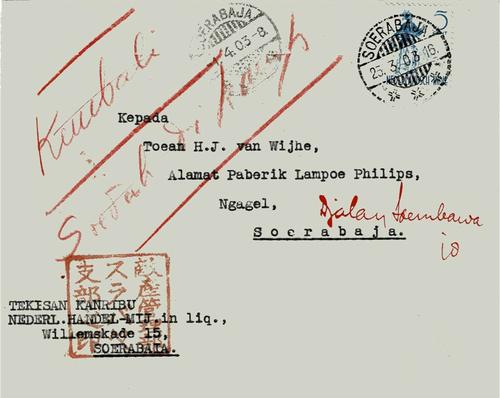 SOERABAJA
4.03-8
5
SOERABAJA
23.3.03.16.
Kembali
Soedah di
Kepada
Toean H.J. van Wijhe,
Alamat Paberik Lampoe Philips,
Ngagel,
Soerabaja.
Djalan Soembawa
10
敵産管理部
スラバヤ
支部之印
TEKISAN KANRIBU
NEDERL.HANDEL-MIJ.in liq.,
Willemskade 15,
SOERABAIA.